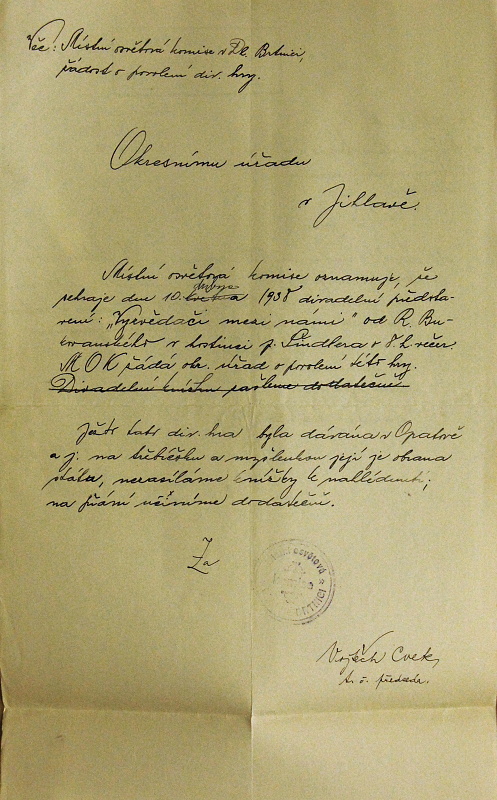 Věc: Místní osvětová komise v Dl. Brtnici,
žádost o povolení div. hry.
Okresnímu úřadu
v Jihlavě.
Místní osvětová komise oznamuje, že
sehraje dne 10. května 1938 divadelní představení: „Vyzvědači mezi námi" od R.
v hostinci p. Lindlera v 8 h. večer.
MOK žádá okr. úřad o povolení této hry.
Divadelní knihu zašleme dodatečně
Ježto tato div. hra byla dávána v Opatově
a j. na třebíčsku a myšlenkou její je obrana
státu, nezasíláme knížky k nahlédnutí;
na přání učiníme dodatečně.
Za
osvětová
BRTNICI
Vojtěch Cvek,
t. č. předseda.